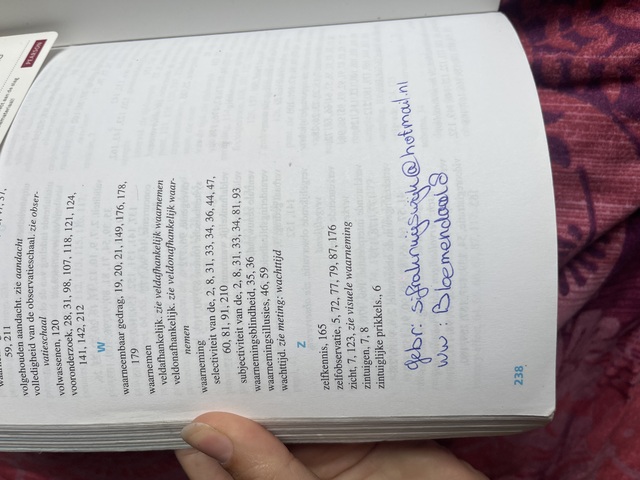 59, 211
volgehouden aandacht. zie aandacht
volledigheid van de observatieschaal. zie obser-
vatieschaal
volwassenen, 120
vooronderzoek, 28, 31, 98, 107, 118, 121, 124,
141, 142, 212
W
waarneembaar gedrag, 19, 20, 21, 149, 176, 178,
179
waarnemen
veldafhankelijk. zie veldafhankelijk waarnemen
veldonafhankelijk. zie veldonafhankelijk waar-
nemen
waarneming
selectiviteit van de, 2, 8, 31, 33, 34, 36, 44, 47,
60, 81, 91, 210
subjectiviteit van de, 2, 8, 31, 33, 34, 81, 93
waarnemingsblindheid, 35, 36
waarnemingsillusies, 46, 59
wachttijd. zie meting: wachttijd
Z
zelfkennis, 165
zelfobservatie, 5, 72, 77, 79, 87, 176
zicht, 7, 123, zie visuele waarneming
zintuigen, 7, 8
zintuiglijke prikkels., 6
gebr:
ww:
238
PEARSON